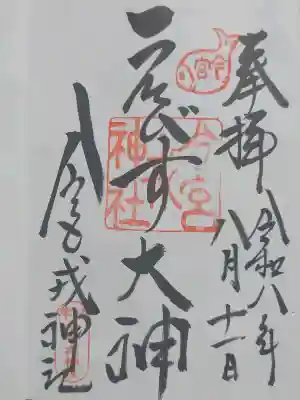 奉拝
令和八年
八月十一日
ゑびす大神
今宮
戎
神社
今宮戎神社